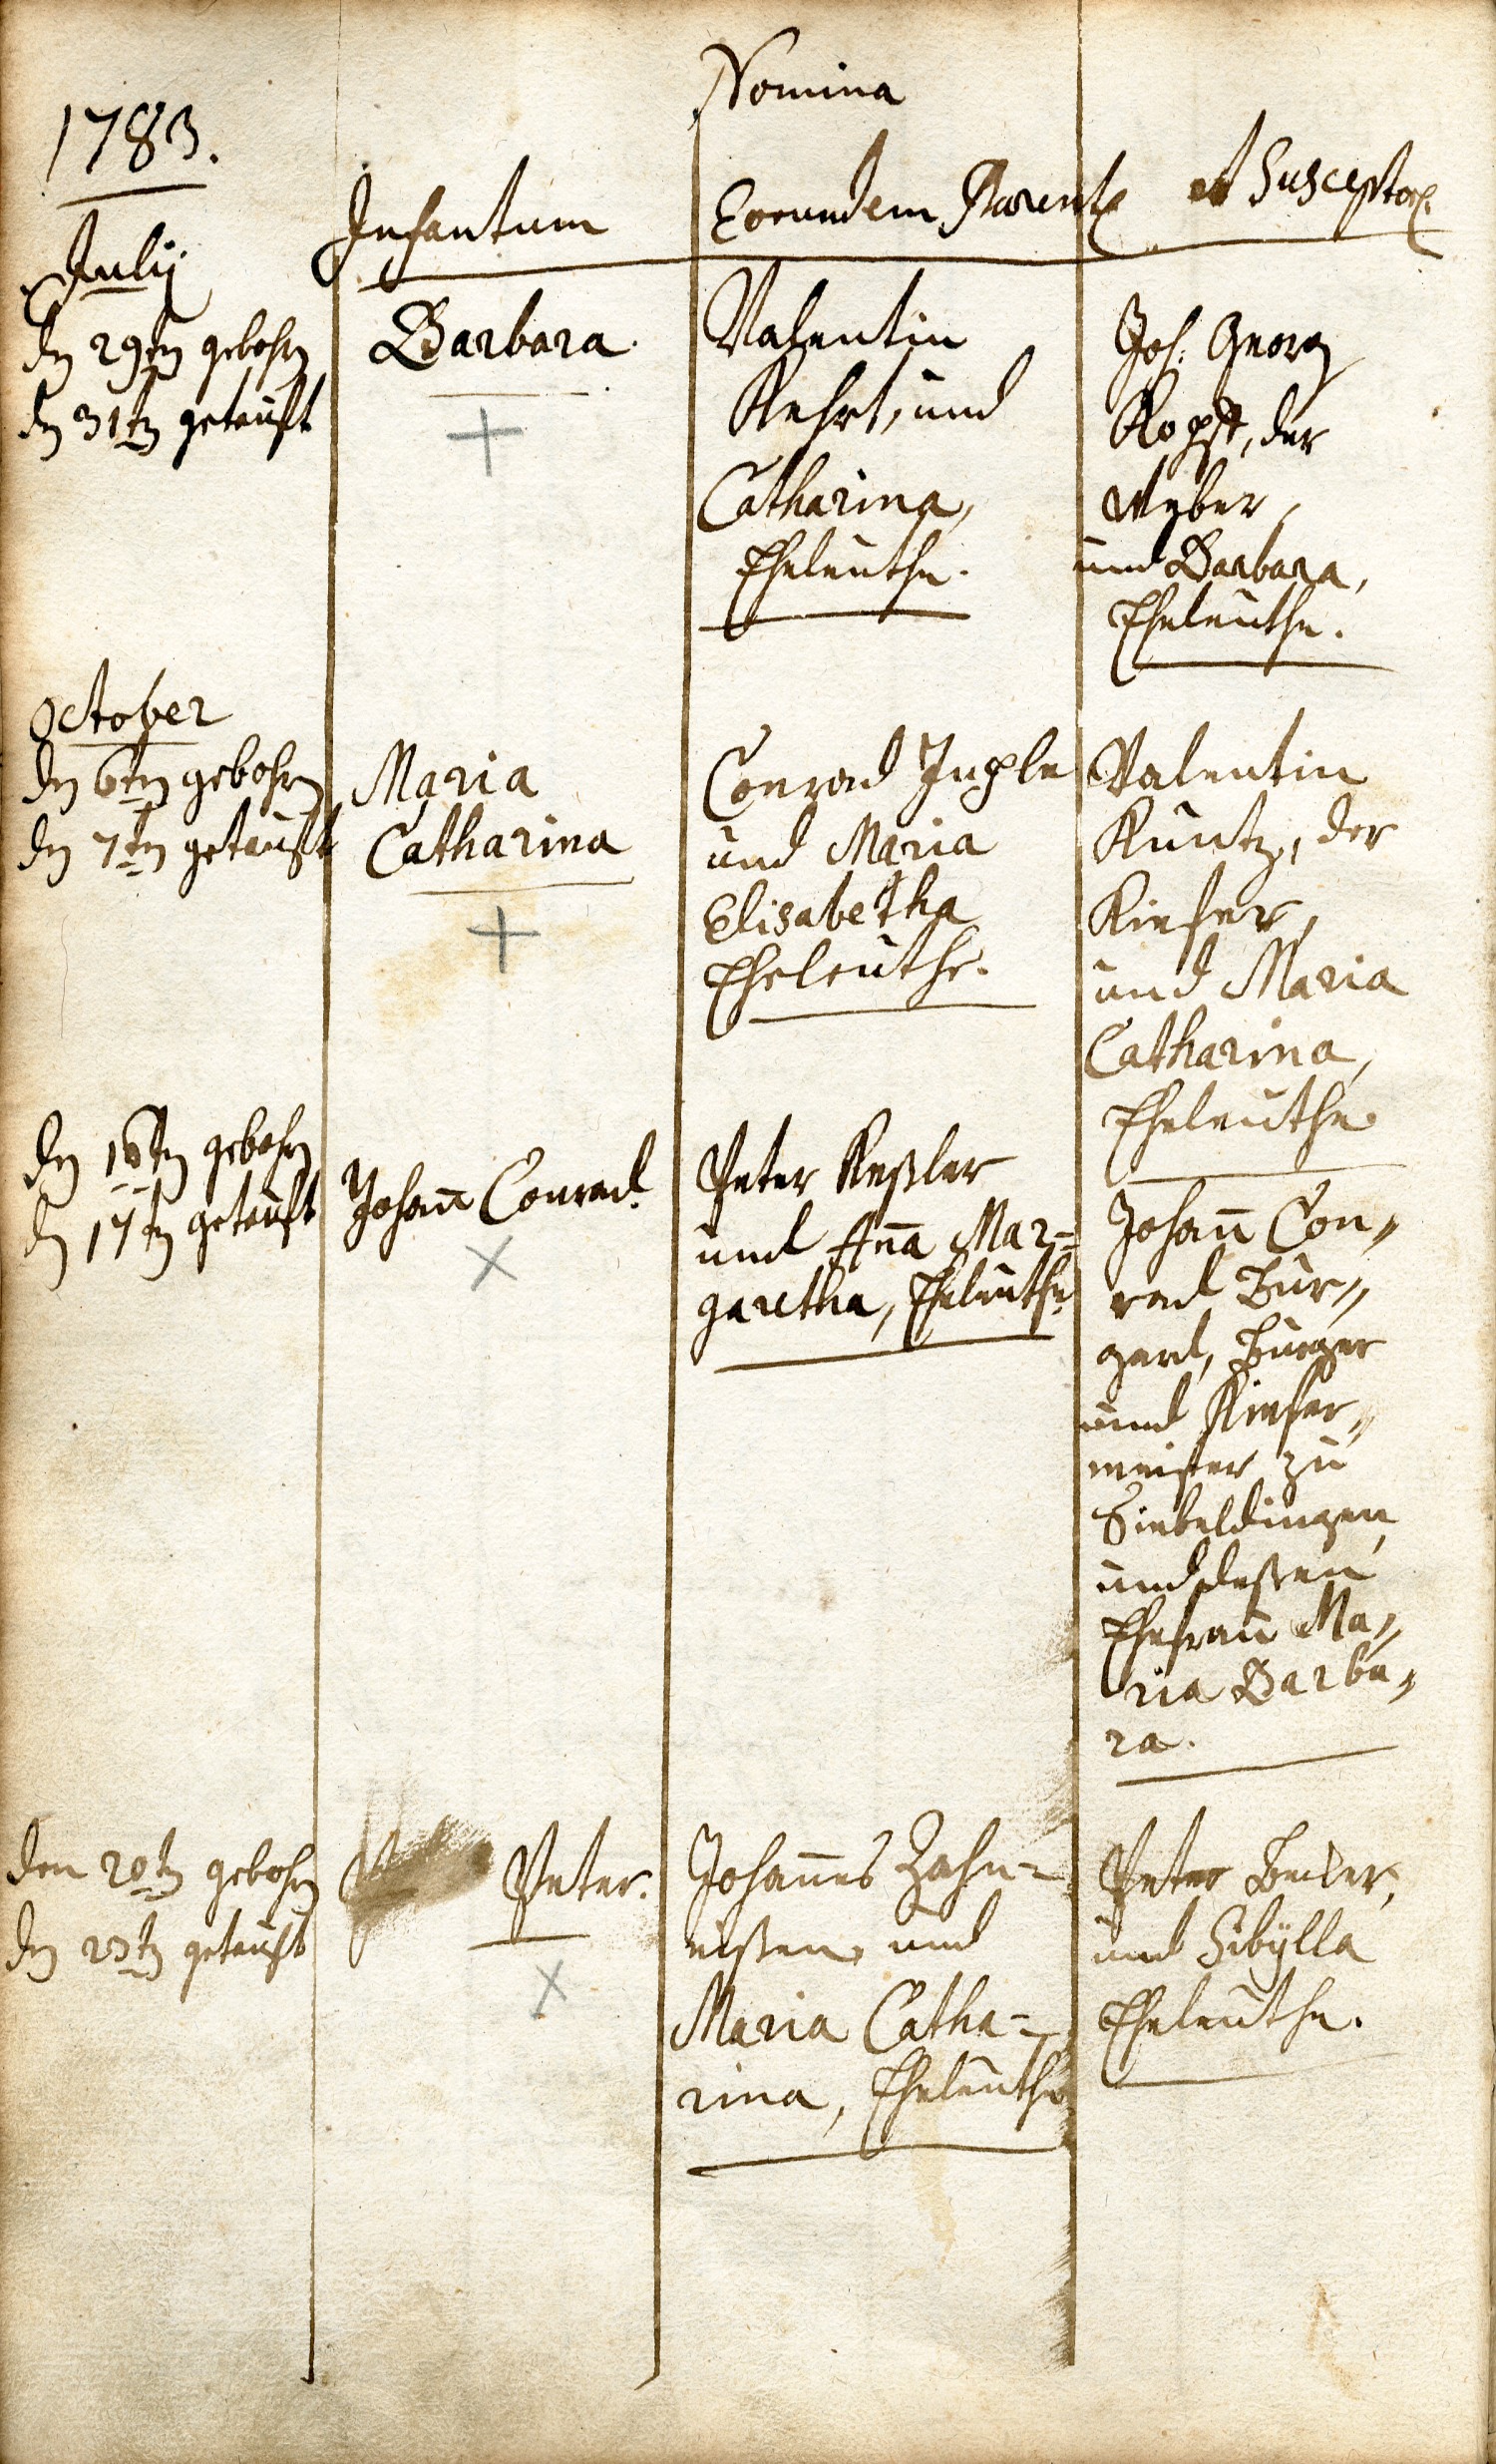 Nomina
1783.
Infantum
Eorundem Parent.
et Susceptor.
July
den 29ten gebohren
den 31ten getauft
Barbara.
Valentin
Kehrt, und
Catharina,
Eheleuthe.
Joh: Georg
Kopft, der
Weber,
und Barbara,
Eheleuthe.
October
den 6ten gebohren
den 7ten getauft
Maria
Catharina
Conrad
und Maria
Elisabetha
Eheleuthe.
Valentin
Kuntz, der
Kiefer,
und Maria
Catharina,
Eheleuthe
den 16ten gebohren
den 17ten getauft
Johañ Conrad.
Peter Keßler
und Aña Mar=
garetha, Eheleuthe
Johañ Con„
rad Bur„
gard, Burger
und Kiefer„
meister zu
Siebeldingen,
und deßen
Ehefrau Ma„
ria Barba„
ra.
den 20ten gebohren
den 23ten getauft
Peter.
Johañes Zahn=
eißen und
Maria Catha=
rina, Eheleuthe
Peter Becker,
und Sibÿlla
Eheleuthe.